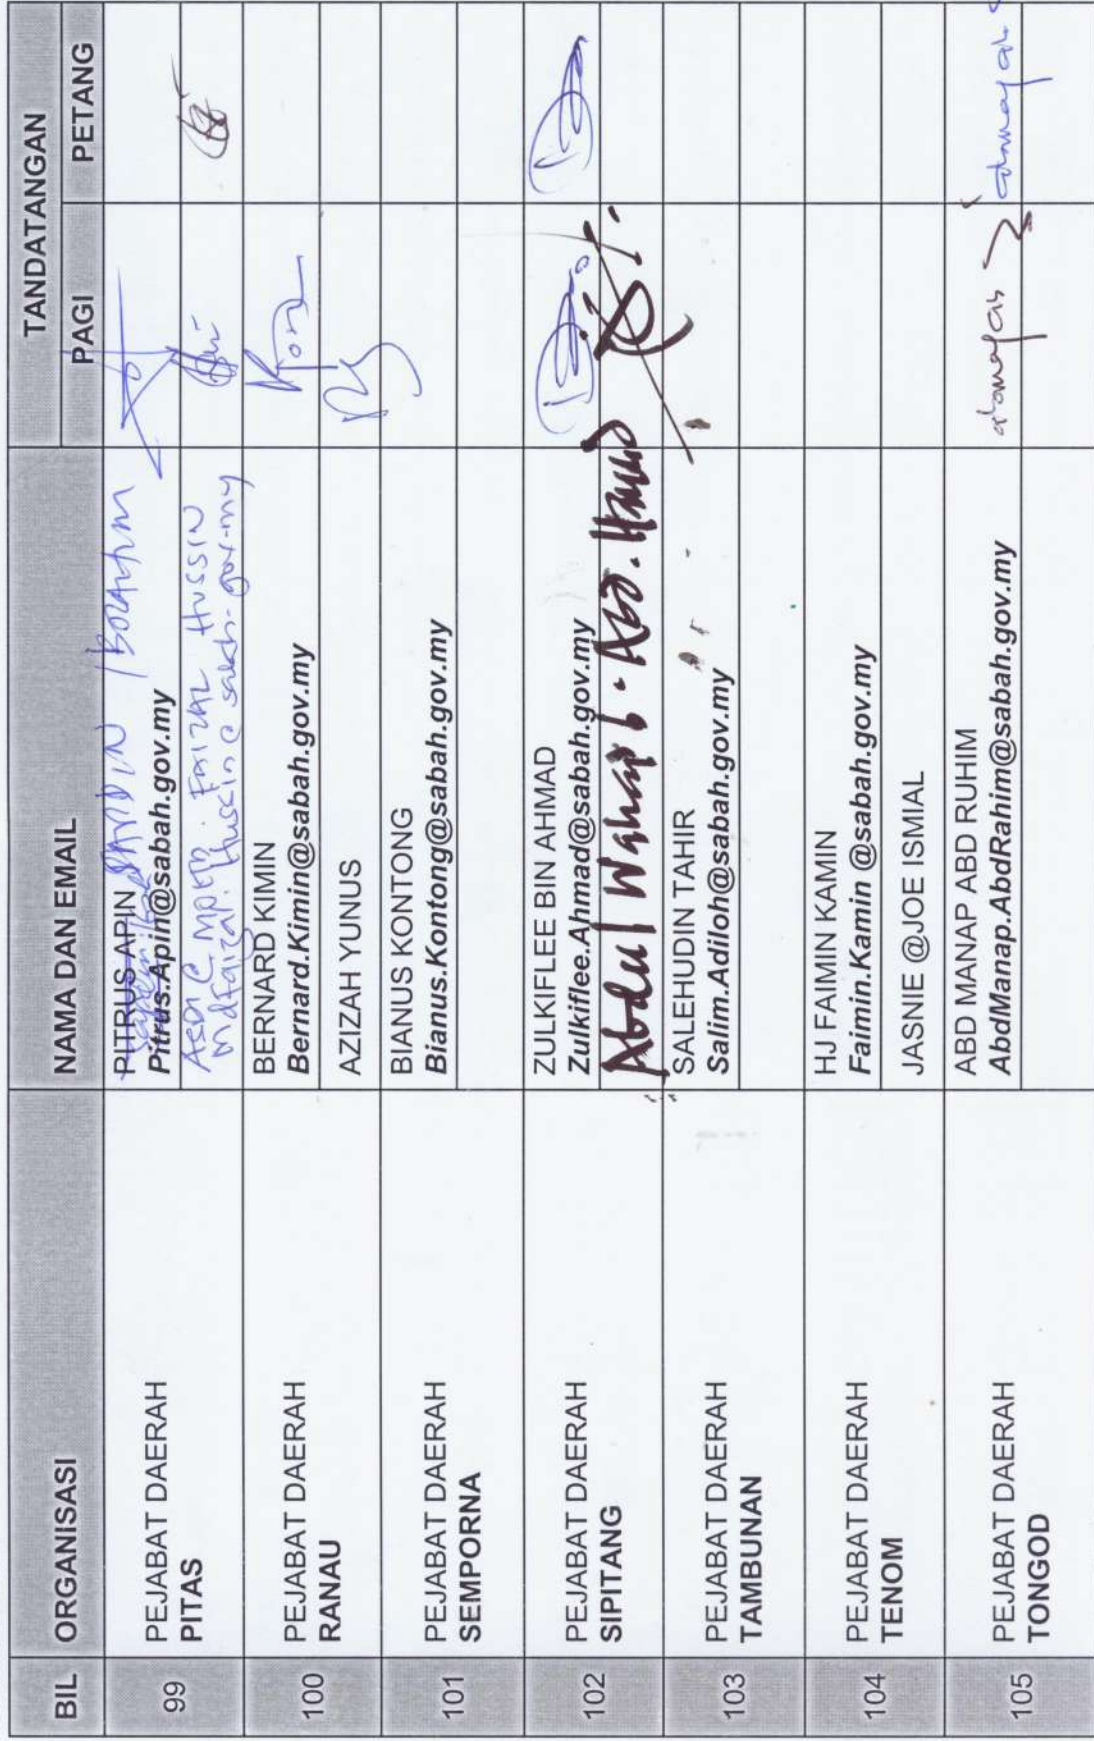 BIL ORGANISASI NAMA DAN EMAIL TANDATANGAN
PAGI PETANG
99 PEJABAT DAERAH
PITAS
PITRUS APIN IBRAHIM
Pitrus.Apin@sabah.gov.my
FAIZAL HUSSIN
MdFaizal.Hussin@sabah.gov.my
100 PEJABAT DAERAH
RANAU
BERNARD KIMIN
Bernard.Kimin@sabah.gov.my
AZIZAH YUNUS
101 PEJABAT DAERAH
SEMPORNA
BIANUS KONTONG
Bianus.Kontong@sabah.gov.my
102 PEJABAT DAERAH
SIPITANG
ZULKIFLEE BIN AHMAD
Zulkiflee.Ahmad@sabah.gov.my
Abdul Wahap b. Abd.
103 PEJABAT DAERAH
TAMBUNAN
SALEHUDIN TAHIR
Salim.Adiloh@sabah.gov.my
104 PEJABAT DAERAH
TENOM
HJ FAIMIN KAMIN
Faimin.Kamin @sabah.gov.my
JASNIE @JOE ISMIAL
105 PEJABAT DAERAH
TONGOD
ABD MANAP ABD RUHIM
AbdManap.AbdRahim@sabah.gov.my